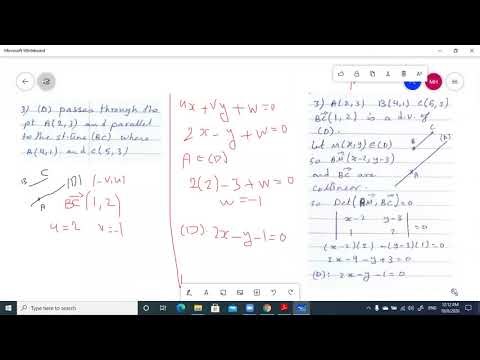 Microsoft Whiteboard
3) (D) passes through the
pt A(2,3) and parallel
to the st-line (BC) where
A(4,1) and C(5,3)
B C
A (D) (-v,u)
BC(1,2)
u=2 v=-1
ux+vy+w=0
2x-y+w=0
A∈(D)
2(2)-3+w=0
w=-1
(D): 2x-y-1=0
MH
3) A(2,3) B(4,1) C(5,3)
BC(1,2) is a d.v. of
(D).
Let M(x,y)∈(D)
so AM(x-2,y-3)
and BC are
collinear.
B C (D)
A
so Det(AM,BC)=0
|x-2 y-3|
|1 2| =0
(x-2)(2)-(y-3)(1)=0
2x-4-y+3=0
(D): 2x-y-1=0
ENG
10:12 AM